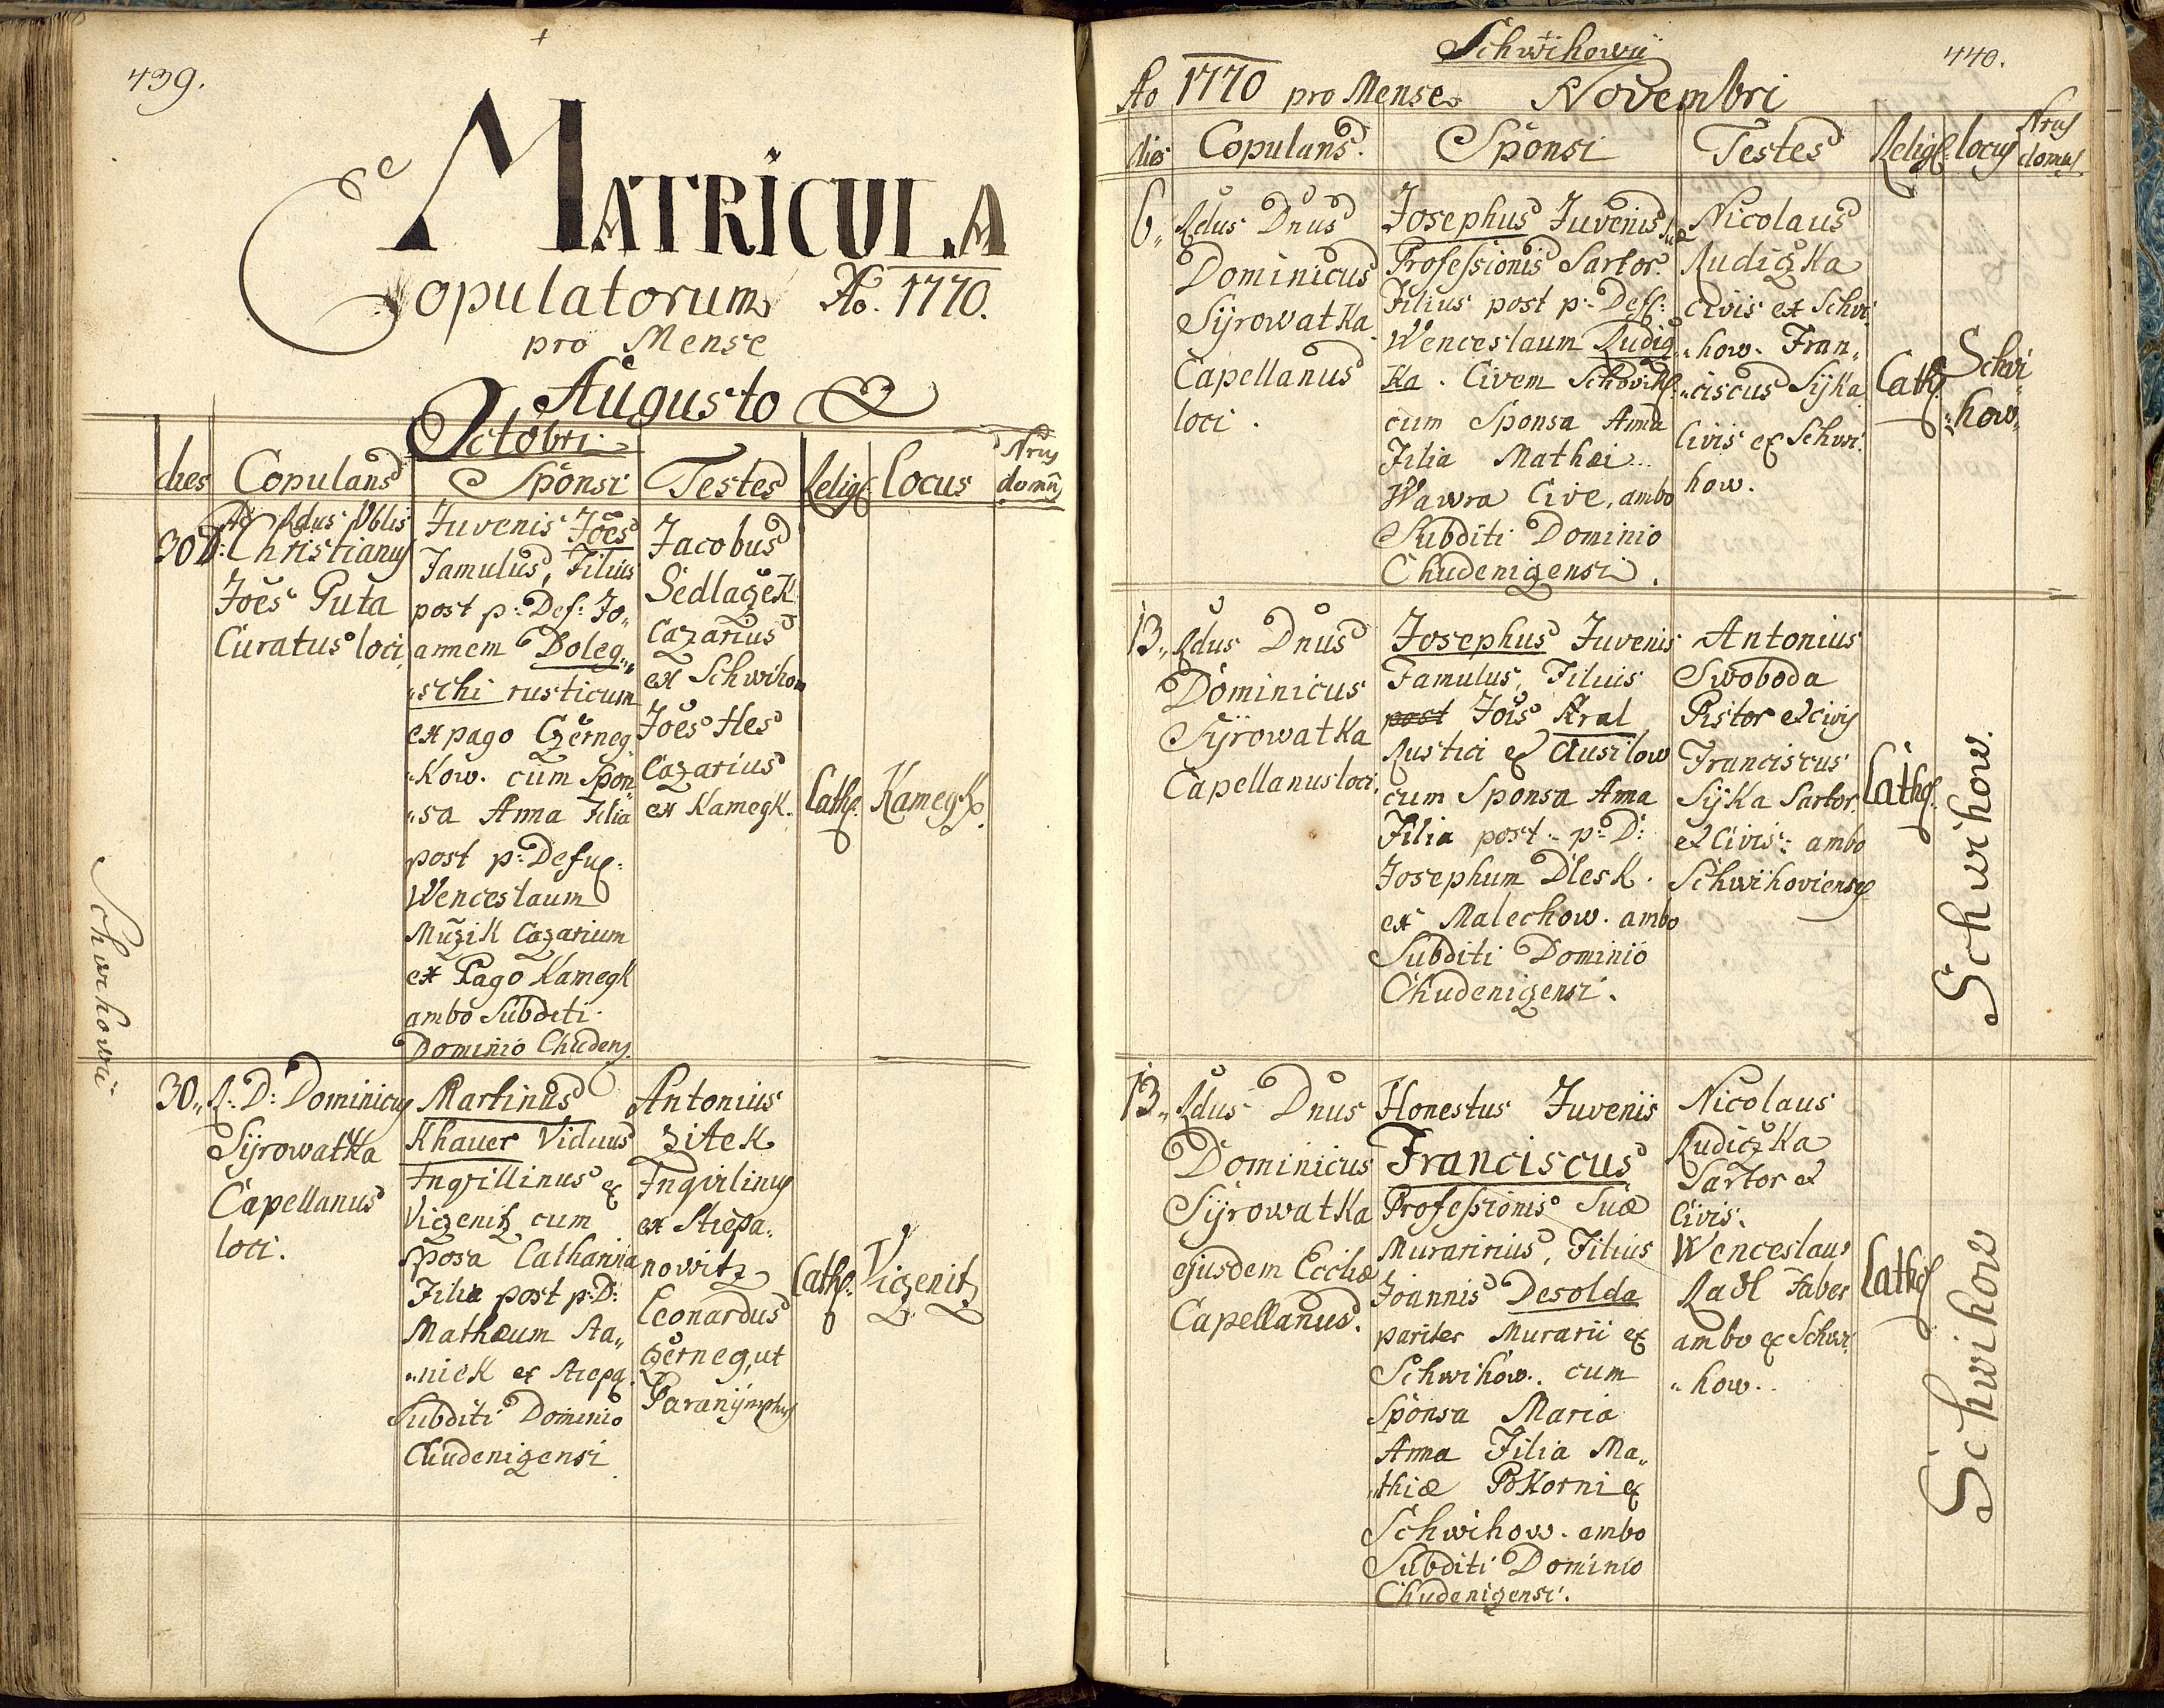 439.
MATRICULA
Copulatorum Ao. 1770.
pro Mense
Augusto
Octobri
dies Copulans Sponsi Testes Relig: Locus Nrus domus
30
Ad Rdus Nblis
D: Christianus
Joes Guta
Curatus loci
Juvenis Joes
Famulus, Filius
post p: Def: Jo„
annem Doleg„
„schi rusticum
ex pago Czerneg„
„kow. cum Spon„
„sa Anna Filia
post p: Defu:
Wenceslaum
Muzik Cazarium
ex Pago Kamegk
ambo Subditi
Dominio Chudens.
Jacobus
Sedlaczek
Cazarius
ex Schwihow
Joes Hes
Cazarius
ex Kamegk.
Cath:
Kamegk.
Schwihowii
30„
R: D: Dominicus
Syrowatka
Capellanus
loci.
Martinus
Khauer Viduus
Inqvillinus ex
Viczenitz cum
sposa Catharina
Filia post p: D:
Mathæum Sta„
„niek ex Stiepa.
Subditi Dominio
Chudenicensi
Antonius
Zitek
Inqvilinus
ex Stiepa„
nowitz
Leonardus
Czerneg, ut
Paranijmphus
Cath:
Viczenitz
Schwihowii
440.
Ao 1770 pro Mense Novembri
dies Copulans. Sponsi Testes Relig: locus Nrus domus
6„
Rdus Dnus
Dominicus
Syrowatka
Capellanus
loci.
Josephus Juvenis
Professionis Sartor.
Filius post p: Def:
Wenceslaum Rudiz
ka. Civem Schwih:
cum Sponsa Anna
Filia Mathæi
Wawra Cive, ambo
Subditi Dominio
Chudenicensi.
Nicolaus
Rudiczka
Civis ex Schwi
„how. Fran„
„ciscus Syka
Civis ex Schwi
how.
Cath:
Schwi„
„how„
13„
Rdus Dnus
Dominicus
Syrowatka
Capellanus loci.
Josephus Juvenis
Famulus, Filius
post Jois Kral
Rustici ex Ausilow
cum Sponsa Anna
Filia post p: D:
Josephum Dlesk.
ex Malechow. ambo
Subditi Dominio
Chudenicensi.
Antonius
Swoboda
Pistor et civis
Franciscus
Syka Sartor.
et Civis: ambo
Schwihoviensis
Cath:
Schwihow.
13„
Rdus Dnus
Dominicus
Syrowatka
ejusdem Eccliæ
Capellanus.
Honestus Juvenis
Franciscus
Professionis Suæ
Murarius, Filius
Joannis Desolda
pariter Murarii ex
Schwihow. cum
Sponsa Maria
Anna Filia Ma„
„thiæ Pokorni ex
Schwihow. ambo
Subditi Dominio
Chudenicensi.
Nicolaus
Rudiczka
Sartor et
Civis.
Wenceslaus
Radl Faber
ambo ex Schwi
„how.
Cath:
Schwihow